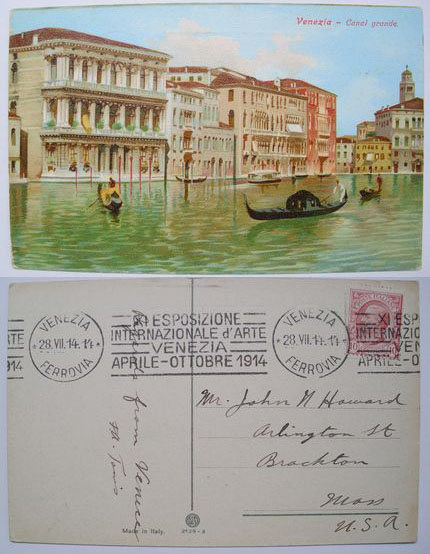 Venezia – Canal grande.
VENEZIA
28.VII.14.14
FERROVIA
XI ESPOSIZIONE
INTERNAZIONALE d'ARTE
VENEZIA
APRILE-OTTOBRE 1914
VENEZIA
28.VII.14.14
FERROVIA
XI ESP
INTERNAZIO
VENE
APRILE-O
RTE
914
from Venice
Mr. John N Howard
Arlington St
Brockton
Mass
U.S.A.
Made in Italy.